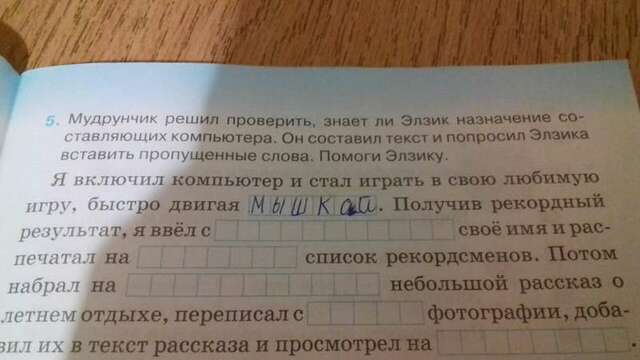 5. Мудрунчик решил проверить, знает ли Элзик назначение со-
ставляющих компьютера. Он составил текст и попросил Элзика
вставить пропущенные слова. Помоги Элзику.
Я включил компьютер и стал играть в свою любимую
игру, быстро двигая мышкой. Получив рекордный
результат, я ввёл с своё имя и рас-
печатал на список рекордсменов. Потом
набрал на небольшой рассказ о
летнем отдыхе, переписал с фотографии, доба-
вил их в текст рассказа и просмотрел на .